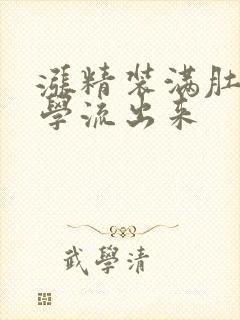 漲精装满肚
學流出来
武學清